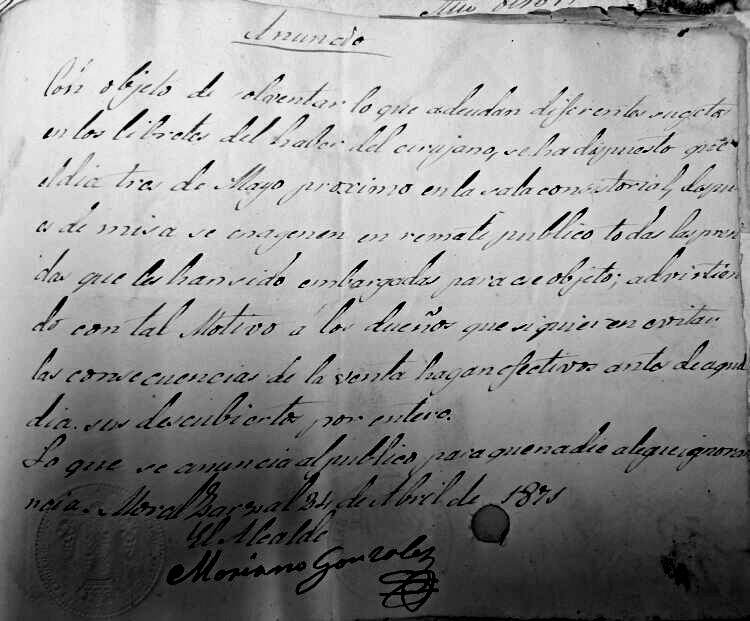 Anuncio
Con objeto de solventar lo que adeudan diferentes sugetos
en los libretes del haber del cirujano, se ha dispuesto que
el dia tres de Mayo proximo en la sala consistorial, despu
es de misa se enagenen en remate publico todas las pren
das que les han sido embargadas para ese objeto; advirtien
do con tal Motivo á los dueños que si quieren evitar
las consecuencias de la venta hagan efectivos antes de aquel
dia sus descubiertos por entero.
Lo que se anuncia al publico para que nadie alegue ignora
ncia. Moralzarzal de Abril de 1871
El Alcalde
Mariano Gonzalez